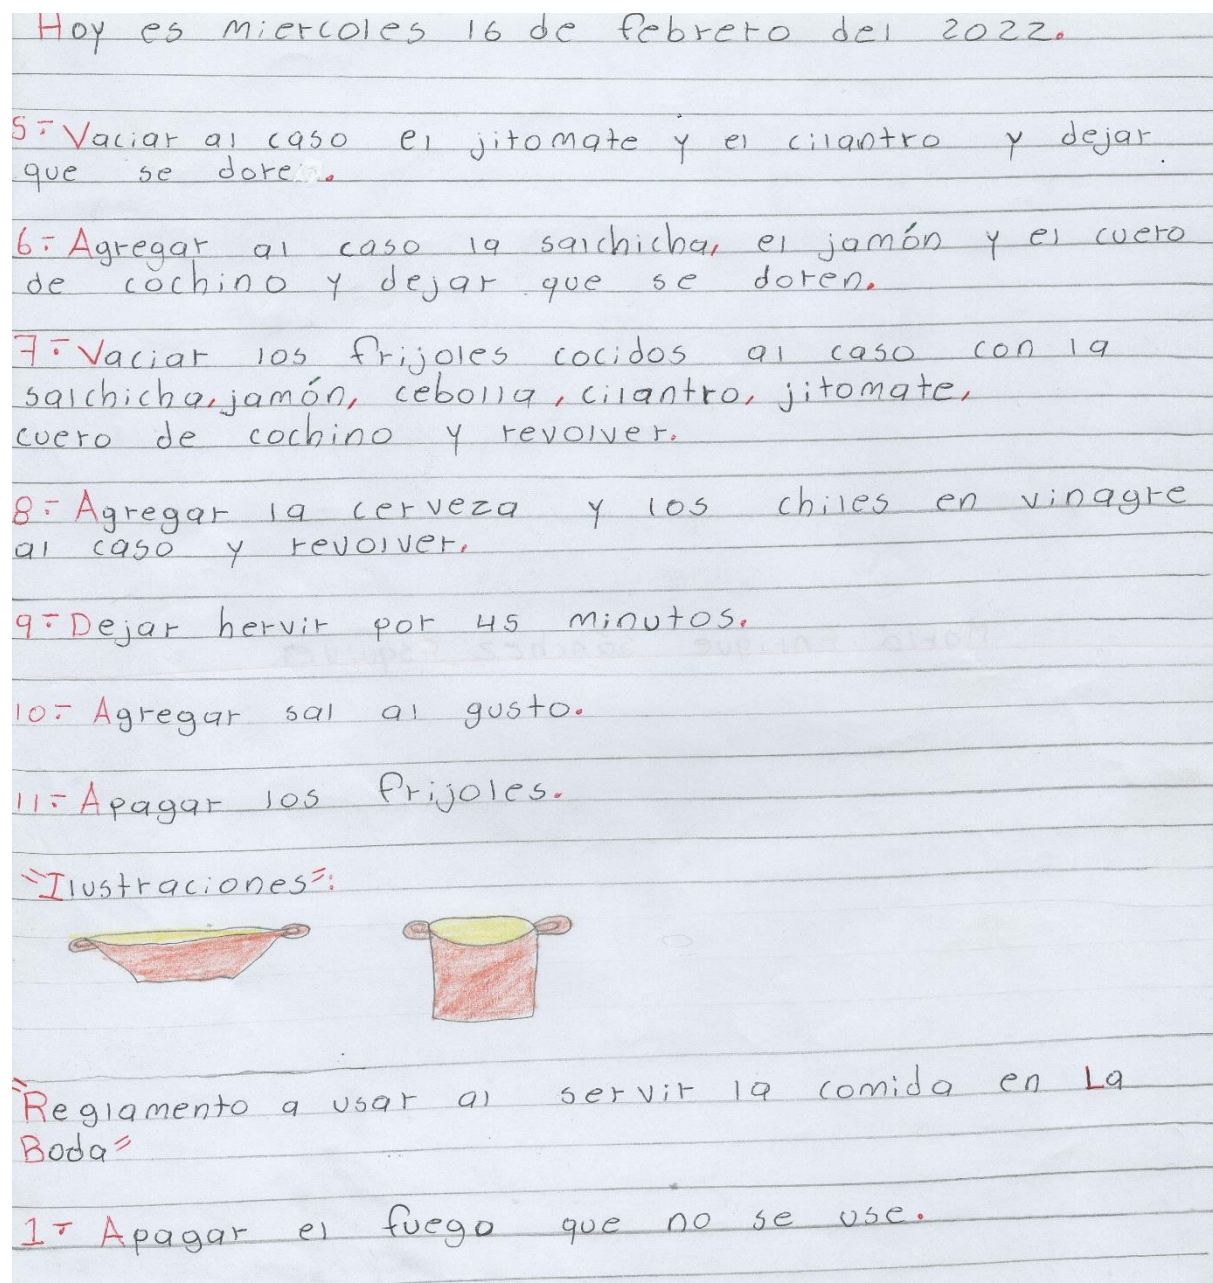 Hoy es miercoles 16 de febrero del 2022.
5.- Vaciar al caso el jitomate y el cilantro y dejar
que se dore.
6.- Agregar al caso la salchicha, el jamón y el cuero
de cochino y dejar que se doren.
7.- Vaciar los frijoles cocidos al caso con la
salchicha, jamón, cebolla, cilantro, jitomate,
cuero de cochino y revolver.
8.- Agregar la cerveza y los chiles en vinagre
al caso y revolver.
9.- Dejar hervir por 45 minutos.
10.- Agregar sal al gusto.
11.- Apagar los frijoles.
"Ilustraciones":
"Reglamento a usar al servir la comida en La
Boda"
1.- Apagar el fuego que no se use.